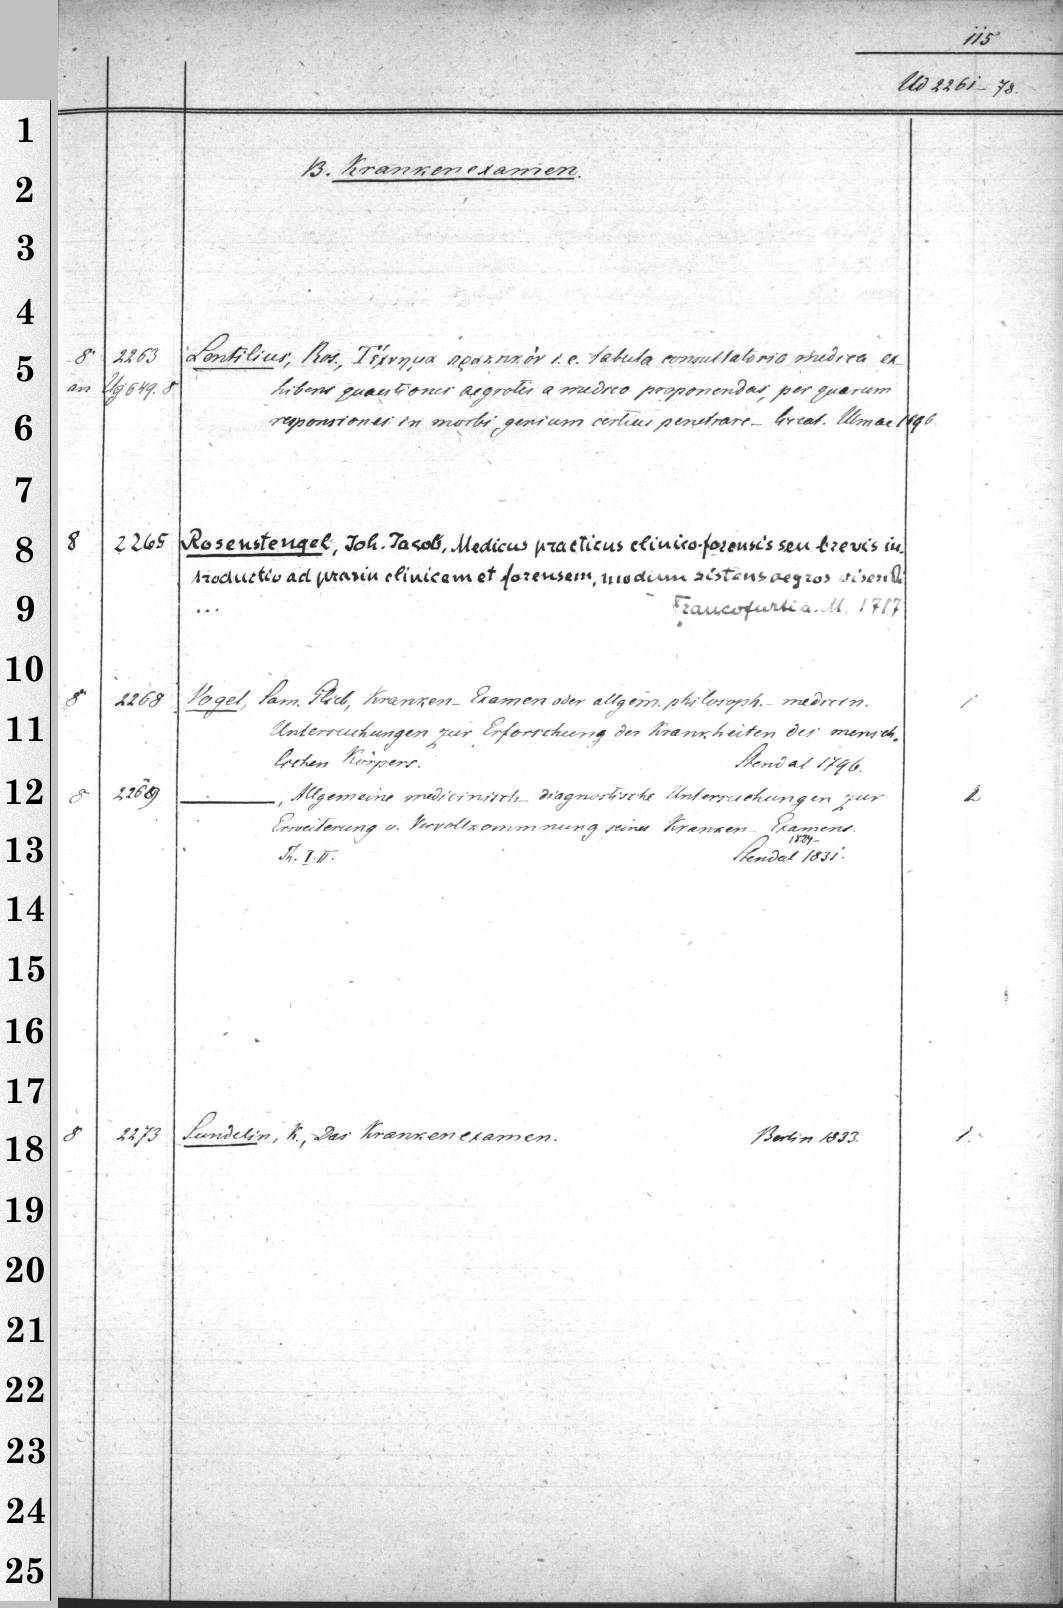 115
Ud 2261-78.
1
B. Krankenexamen.
2
3
4
8° 2263 Lentilius, Ros., Τέχνημα πρακτικὸν s. e. tabula consultatoria medica ex-
5
an Ug 649. 8 hibens quaestiones aegrotis a medico proponendas, per quarum
6
responsiones in morbi genium certius penetrare- liceat. Ulmae 1696
7
8 2265 Rosenstengel, Joh. Jacob, Medicus practicus clinico-forensis seu brevis in-
8
troductio ad praxin clinicam et forensem, modum sistens aegros visendi
9
... Francofurti a. M. 1717
10
8° 2268 Vogel, Sam. Glieb, Kranken-Examen oder allgem. philosoph.-medicin. 1
11
Untersuchungen zur Erforschung der Krankheiten des mensch-
lichen Körpers. Stendal 1796.
12
8 2269 ———, Allgemeine medicinisch-diagnostische Untersuchungen zur 2
Erweiterung u. Vervollkommnung seines Kranken-Examens.
13
Th. I. II. Stendal 1824-1831.
14
15
16
17
8 2273 Sundelin, K., Das Krankenexamen. Berlin 1833. 1.
18
19
20
21
22
23
24
25